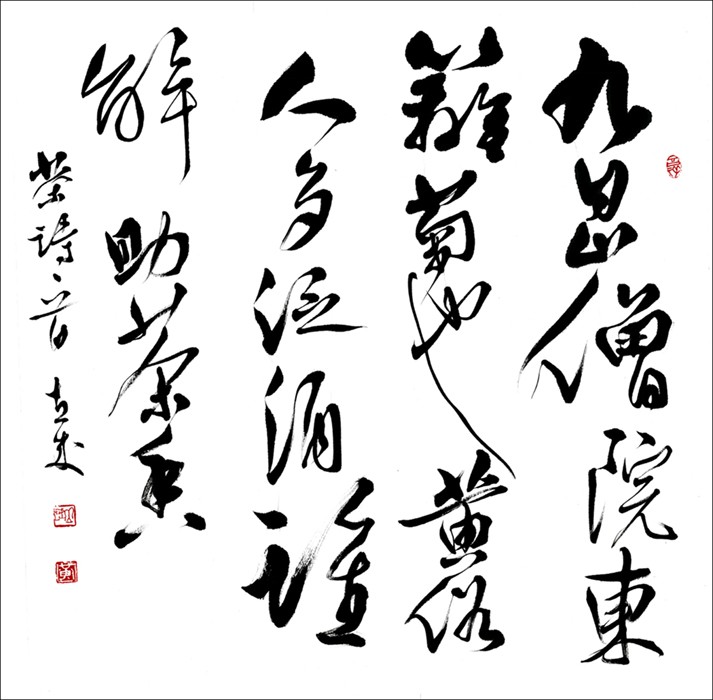 九日山僧院東
籬菊也黃俗
人多泛酒誰
解助茶香
茶詩一首